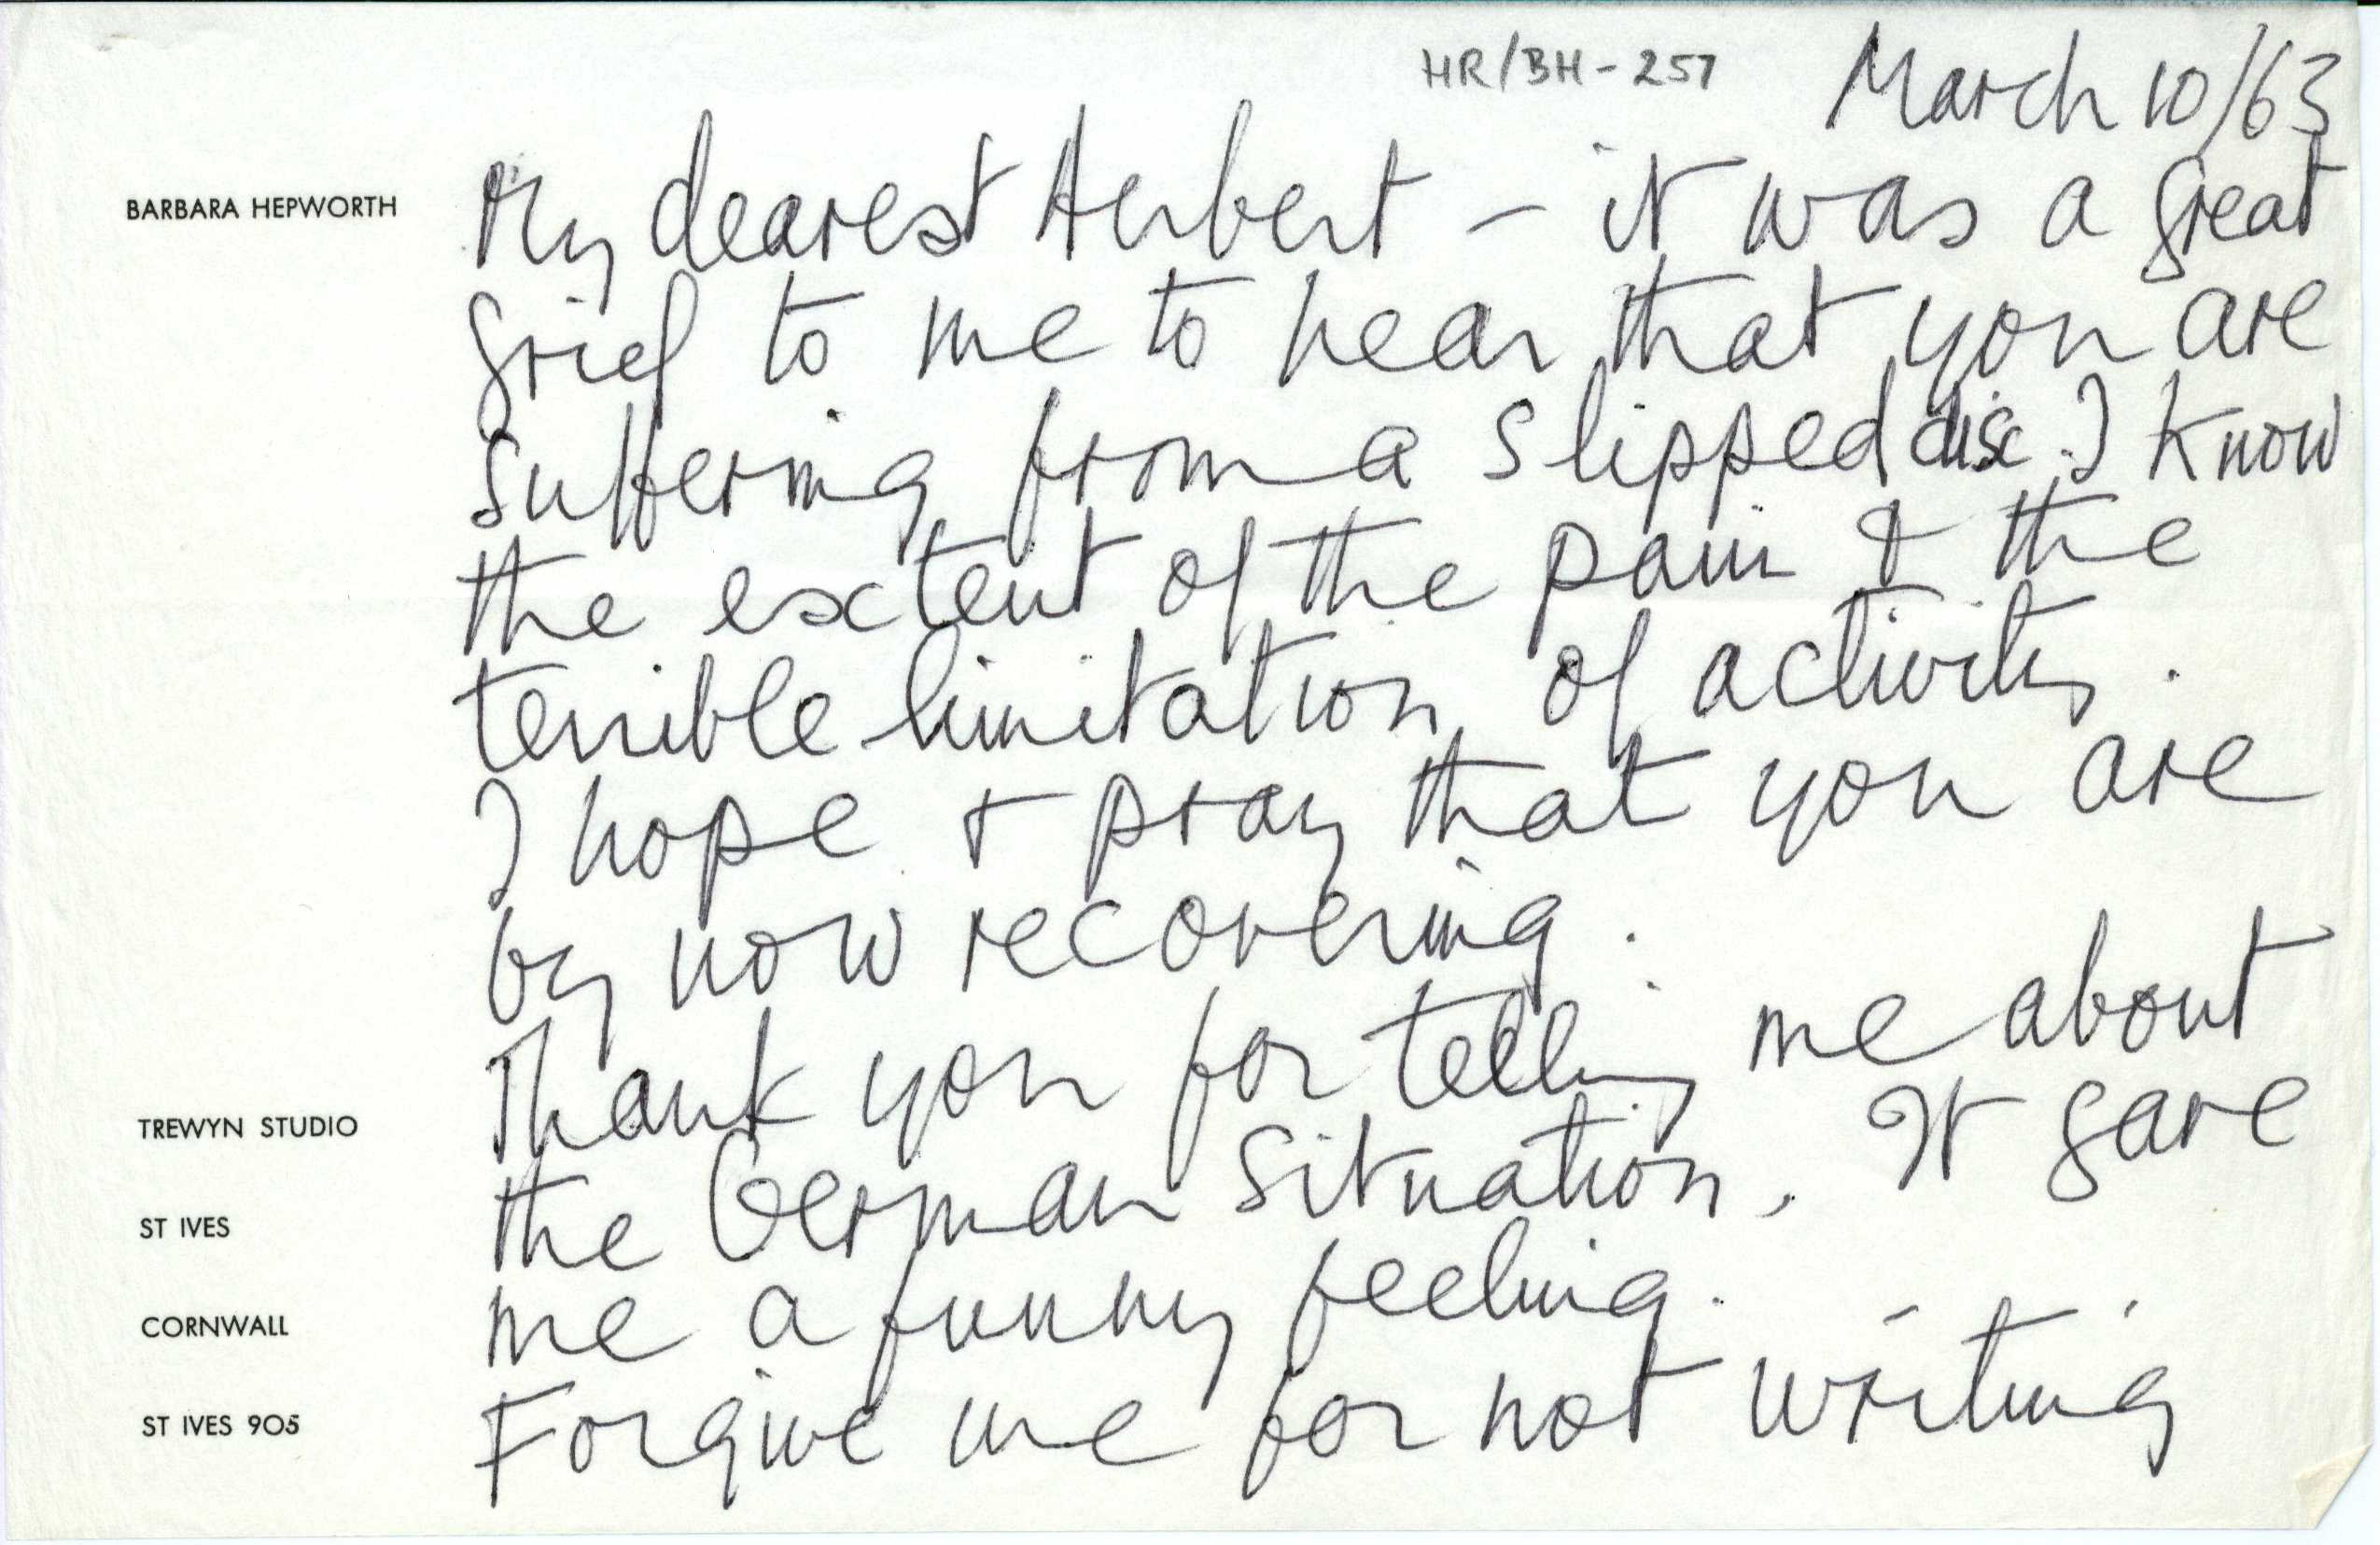 HR/BH-257
March 10/63
BARBARA HEPWORTH
My dearest Herbert – it was a great
grief to me to hear that you are
suffering from a slipped disc. I know
the extent of the pain & the
terrible limitation of activity.
I hope & pray that you are
by now recovering.
Thank you for telling me about
the German situation. It gave
me a funny feeling.
Forgive me for not writing
TREWYN STUDIO
ST IVES
CORNWALL
ST IVES 905